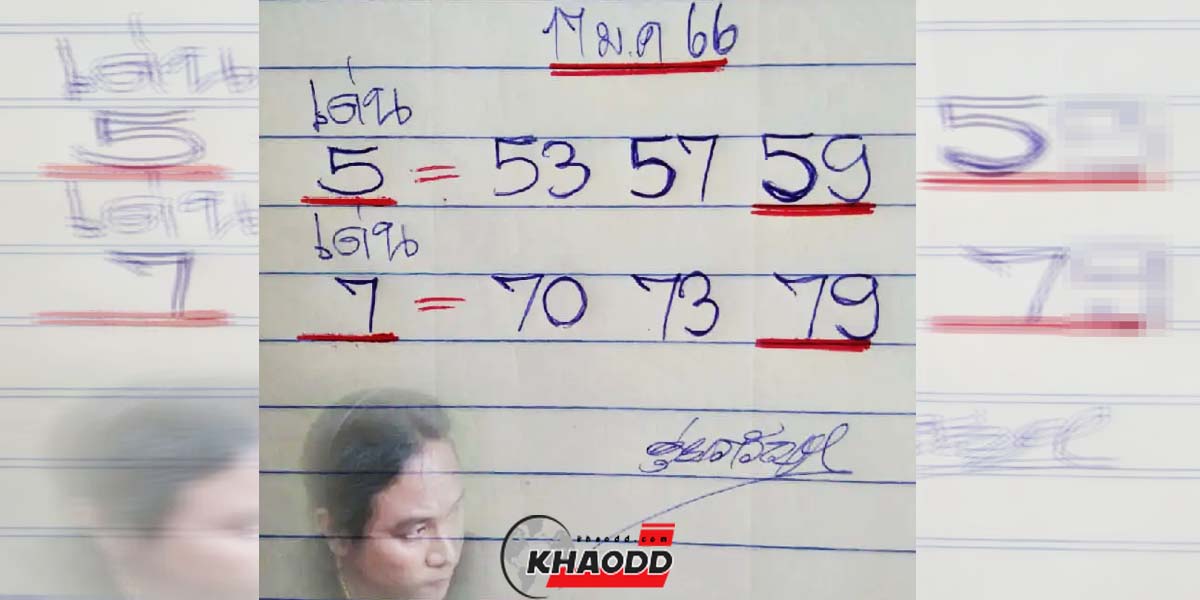 17 ม.ค 66
เด่น
5 = 53 57 59
เด่น
7 = 70 73 79
khaodd.com
KHAODD